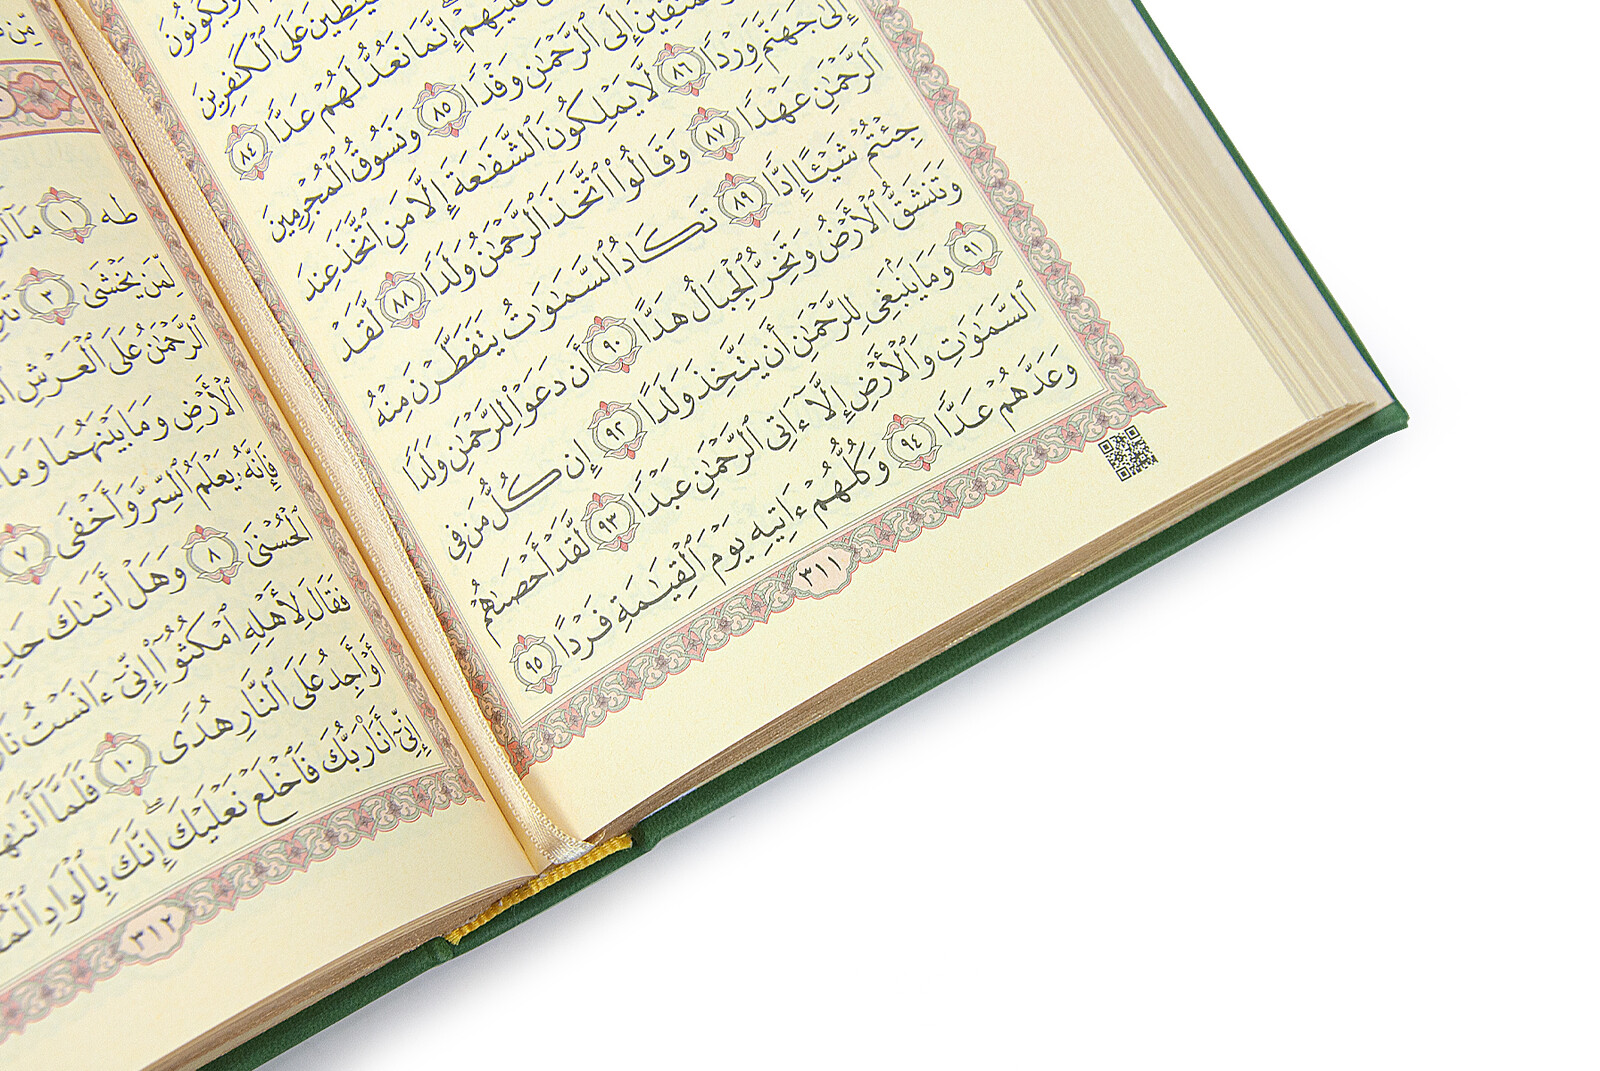 وَيَكُونُونَ
عَلَى ٱلْكَٰفِرِينَ
عَلَيْهِمْ إِنَّمَا نَعُدُّ لَهُمْ عَدًّا ٨٤
إِلَى ٱلرَّحْمَٰنِ وَفْدًا ٨٥ وَنَسُوقُ ٱلْمُجْرِمِينَ
إِلَىٰ جَهَنَّمَ وِرْدًا ٨٦ لَّا يَمْلِكُونَ ٱلشَّفَٰعَةَ إِلَّا مَنِ ٱتَّخَذَ عِندَ
ٱلرَّحْمَٰنِ عَهْدًا ٨٧ وَقَالُوا۟ ٱتَّخَذَ ٱلرَّحْمَٰنُ وَلَدًا ٨٨ لَّقَدْ
جِئْتُمْ شَيْـًٔا إِدًّا ٨٩ تَكَادُ ٱلسَّمَٰوَٰتُ يَتَفَطَّرْنَ مِنْهُ
وَتَنشَقُّ ٱلْأَرْضُ وَتَخِرُّ ٱلْجِبَالُ هَدًّا ٩٠ أَن دَعَوْا۟ لِلرَّحْمَٰنِ وَلَدًا
٩١ وَمَا يَنۢبَغِى لِلرَّحْمَٰنِ أَن يَتَّخِذَ وَلَدًا ٩٢ إِن كُلُّ مَن فِى
ٱلسَّمَٰوَٰتِ وَٱلْأَرْضِ إِلَّآ ءَاتِى ٱلرَّحْمَٰنِ عَبْدًا ٩٣ لَّقَدْ أَحْصَىٰهُمْ
وَعَدَّهُمْ عَدًّا ٩٤ وَكُلُّهُمْ ءَاتِيهِ يَوْمَ ٱلْقِيَٰمَةِ فَرْدًا ٩٥
٣١١
طه ١ مَآ
لِّمَن يَخْشَىٰ ٣
ٱلرَّحْمَٰنُ عَلَى ٱلْعَرْشِ
ٱلْأَرْضِ وَمَا بَيْنَهُمَا وَمَا
فَإِنَّهُۥ يَعْلَمُ ٱلسِّرَّ وَأَخْفَى ٧
ٱلْحُسْنَىٰ ٨ وَهَلْ أَتَىٰكَ
فَقَالَ لِأَهْلِهِ ٱمْكُثُوٓا۟ إِنِّىٓ ءَانَسْتُ
أَوْ أَجِدُ عَلَى ٱلنَّارِ هُدًى ١٠ فَلَمَّآ
إِنِّىٓ أَنَا۠ رَبُّكَ فَٱخْلَعْ نَعْلَيْكَ إِنَّكَ بِٱلْوَادِ
٣١٢